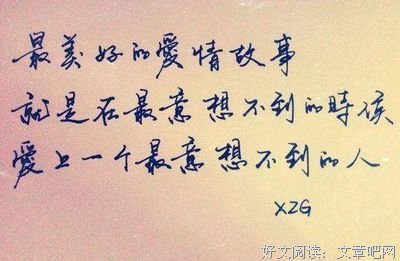 最美好的愛情故事
就是在最意想不到的時候
愛上一个最意想不到的人
XZG
好文阅读：文章吧网